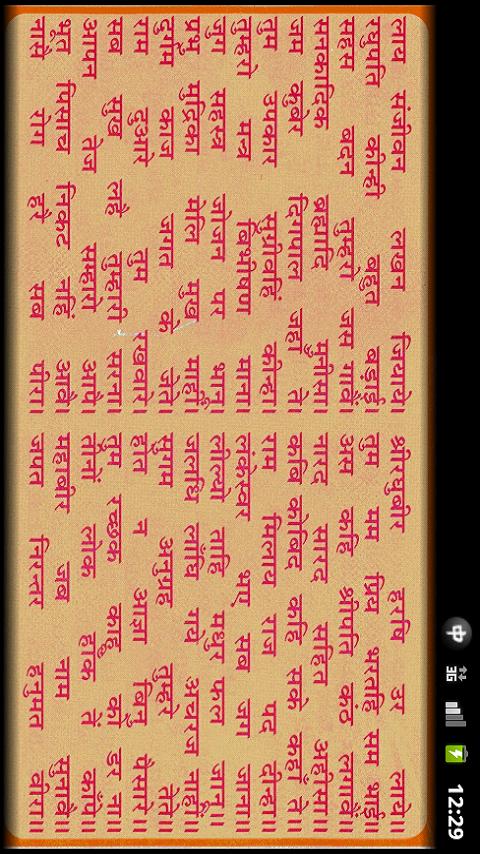 中 3G 12:29
लाय संजीवन लखन जियाये॥ श्रीरघुबीर हरषि उर लाये॥
रघुपति कीन्ही बहुत बड़ाई॥ तुम मम प्रिय भरतहि सम भाई॥
सहस बदन तुम्हरो जस गावैं॥ अस कहि श्रीपति कंठ लगावैं॥
सनकादिक ब्रह्मादि मुनीसा॥ नारद सारद सहित अहीसा॥
जम कुबेर दिगपाल जहाँ ते॥ कबि कोबिद कहि सके कहाँ ते॥
तुम उपकार सुग्रीवहिं कीन्हा॥ राम मिलाय राज पद दीन्हा॥
तुम्हरो मन्त्र बिभीषण माना॥ लंकेस्वर भए सब जग जाना॥
जुग सहस्त्र जोजन पर भानु॥ लील्यो ताहि मधुर फल जानू॥
प्रभु मुद्रिका मेलि मुख माहीं॥ जलधि लाँघि गये अचरज नाहीं॥
दुर्गम काज जगत के जेते॥ सुगम अनुग्रह तुम्हरे तेते॥
राम दुआरे तुम रखवारे॥ होत न आज्ञा बिनु पैसारे॥
सब सुख लहै तुम्हारी सरना॥ तुम रच्छक काहू को डर ना॥
आपन तेज सम्हारो आपै॥ तीनों लोक हाँक तें काँपै॥
भूत पिसाच निकट नहिं आवै॥ महाबीर जब नाम सुनावै॥
नासै रोग हरे सब पीरा॥ जपत निरन्तर हनुमत बीरा॥